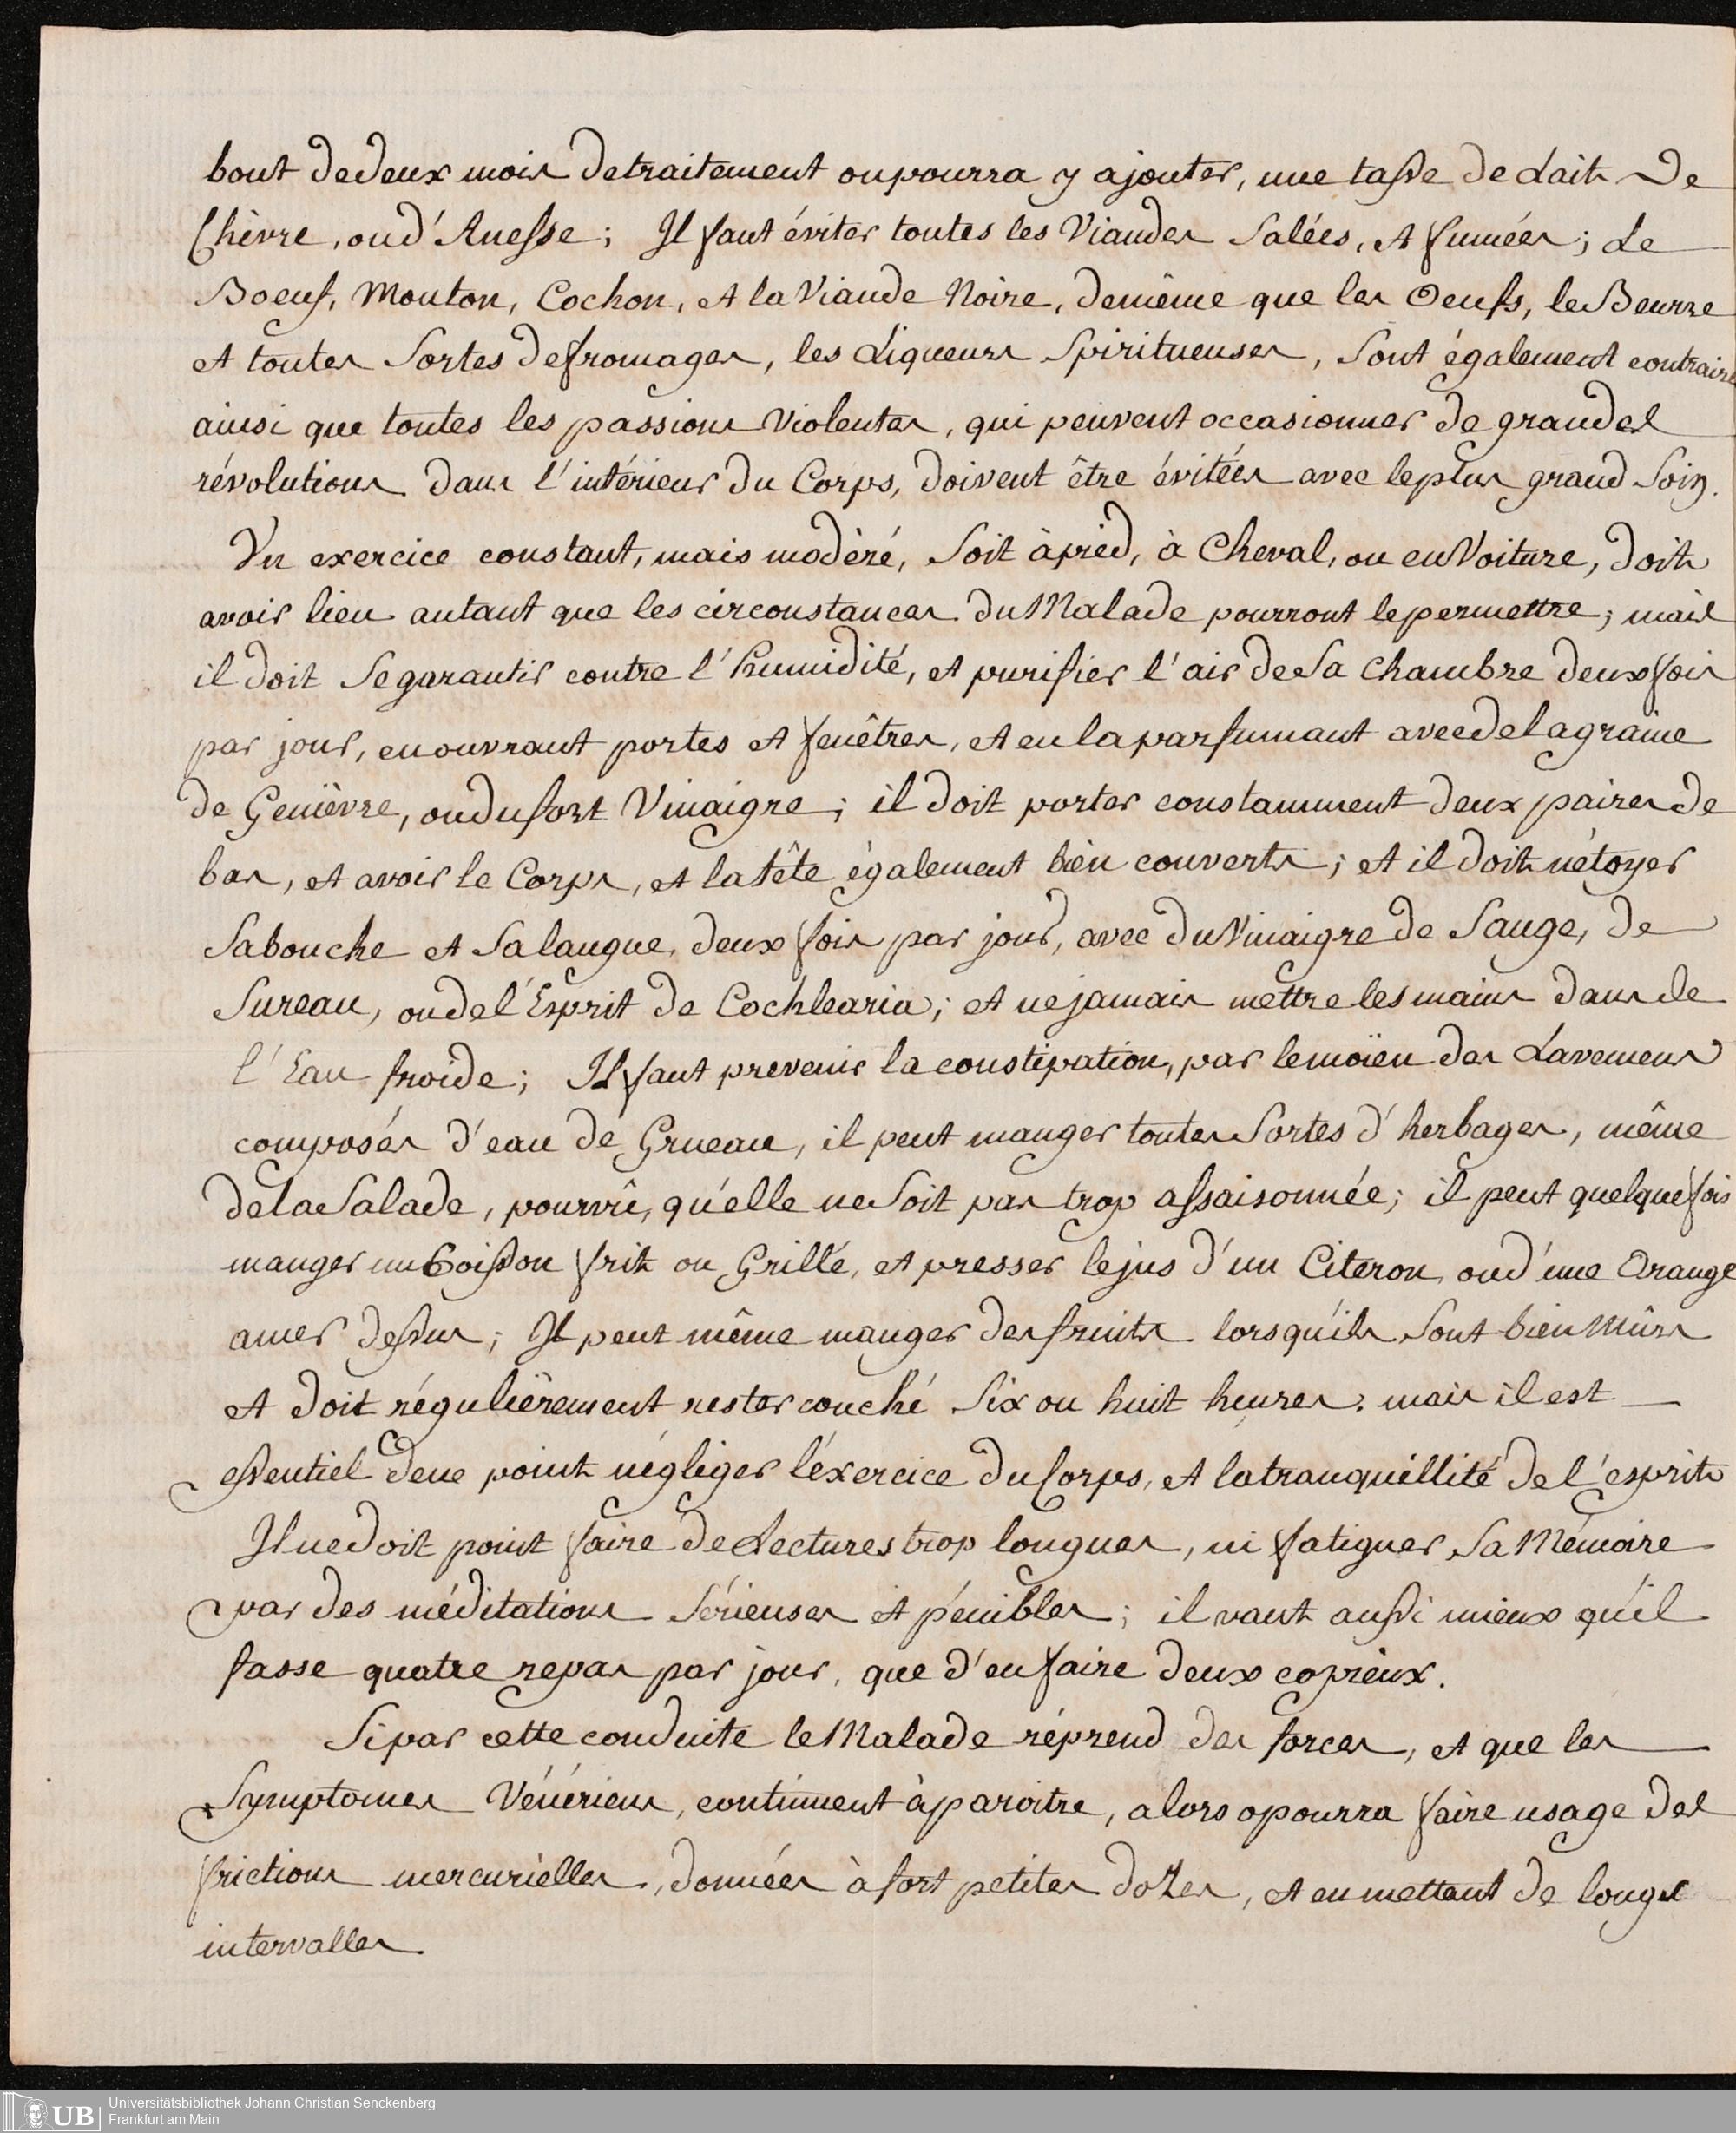 bout de deux mois de traitement on pourra y ajouter, une tasse de Lait de
Chèvre, ou d'Anesse; Il faut éviter toutes les Viandes Salées, et fumées; Le
Boeuf, Mouton, Cochon, et la Viande Noire, de même que les Oeufs, le Beurre
et toutes Sortes de fromages, les Liqueurs Spiritueuses, Sont également contraires
ainsi que toutes les passions Violentes, qui peuvent occasionner de grandes
révolutions dans l'intérieur du Corps, doivent être évitées avec le plus grand Soin.
Un exercice constant, mais modèré, Soit à pied, à Cheval, ou en Voiture, doit
avoir lieu autant que les circonstances du Malade pourront le permettre; mais
il doit Se garantir contre l'humidité, et purifier l'air de Sa Chambre deux fois
par jour, en ouvrant portes et fenêtres, et en la parfumant avec de la graine
de Genièvre, ou du fort Vinaigre; il doit porter constamment deux paires de
bas, et avoir le Corps, et la tête également bien couverts; et il doit nétoyer
Sa bouche et Sa langue, deux fois par jour, avec du Vinaigre de Sauge, de
Sureau, ou de l'Esprit de Cochlearia; et ne jamais mettre les mains dans de
l'Eau froide; Il faut prevenir la constipation, par le moïen des Lavemens
composés d'eau de Grueau, il peut manger toutes Sortes d'herbages, même
de la Salade, pourvû, qu'elle ne Soit pas trop assaisonnée; il peut quelque fois
manger un Poisson frit ou Grillé, et presser le jus d'un Citeron, ou d'une Orange
amer dessus; Il peut même manger des fruits lorsqu'ils Sont bien Mûrs
et doit régulièrement rester couché Six ou huit heures; mais il est
essentiel de ne point négliger l'éxercice du Corps, et la tranquillité de l'esprit
Il ne doit point faire de Lectures trop longues, ni fatiguer Sa Mémoire
par des méditations Sérieuses et pénibles; il vaut aussi mieux qu'il
fasse quatre repas par jour, que d'en faire deux copieux.
Si par cette conduite le Malade réprend des forces, et que les
Symptomes Vénériens, continuent à paroitre, alors o pourra faire usage des
frictions mercurielles, données à fort petites doses, et en mettant de longs
intervalles
Universitätsbibliothek Johann Christian Senckenberg
Frankfurt am Main
UB